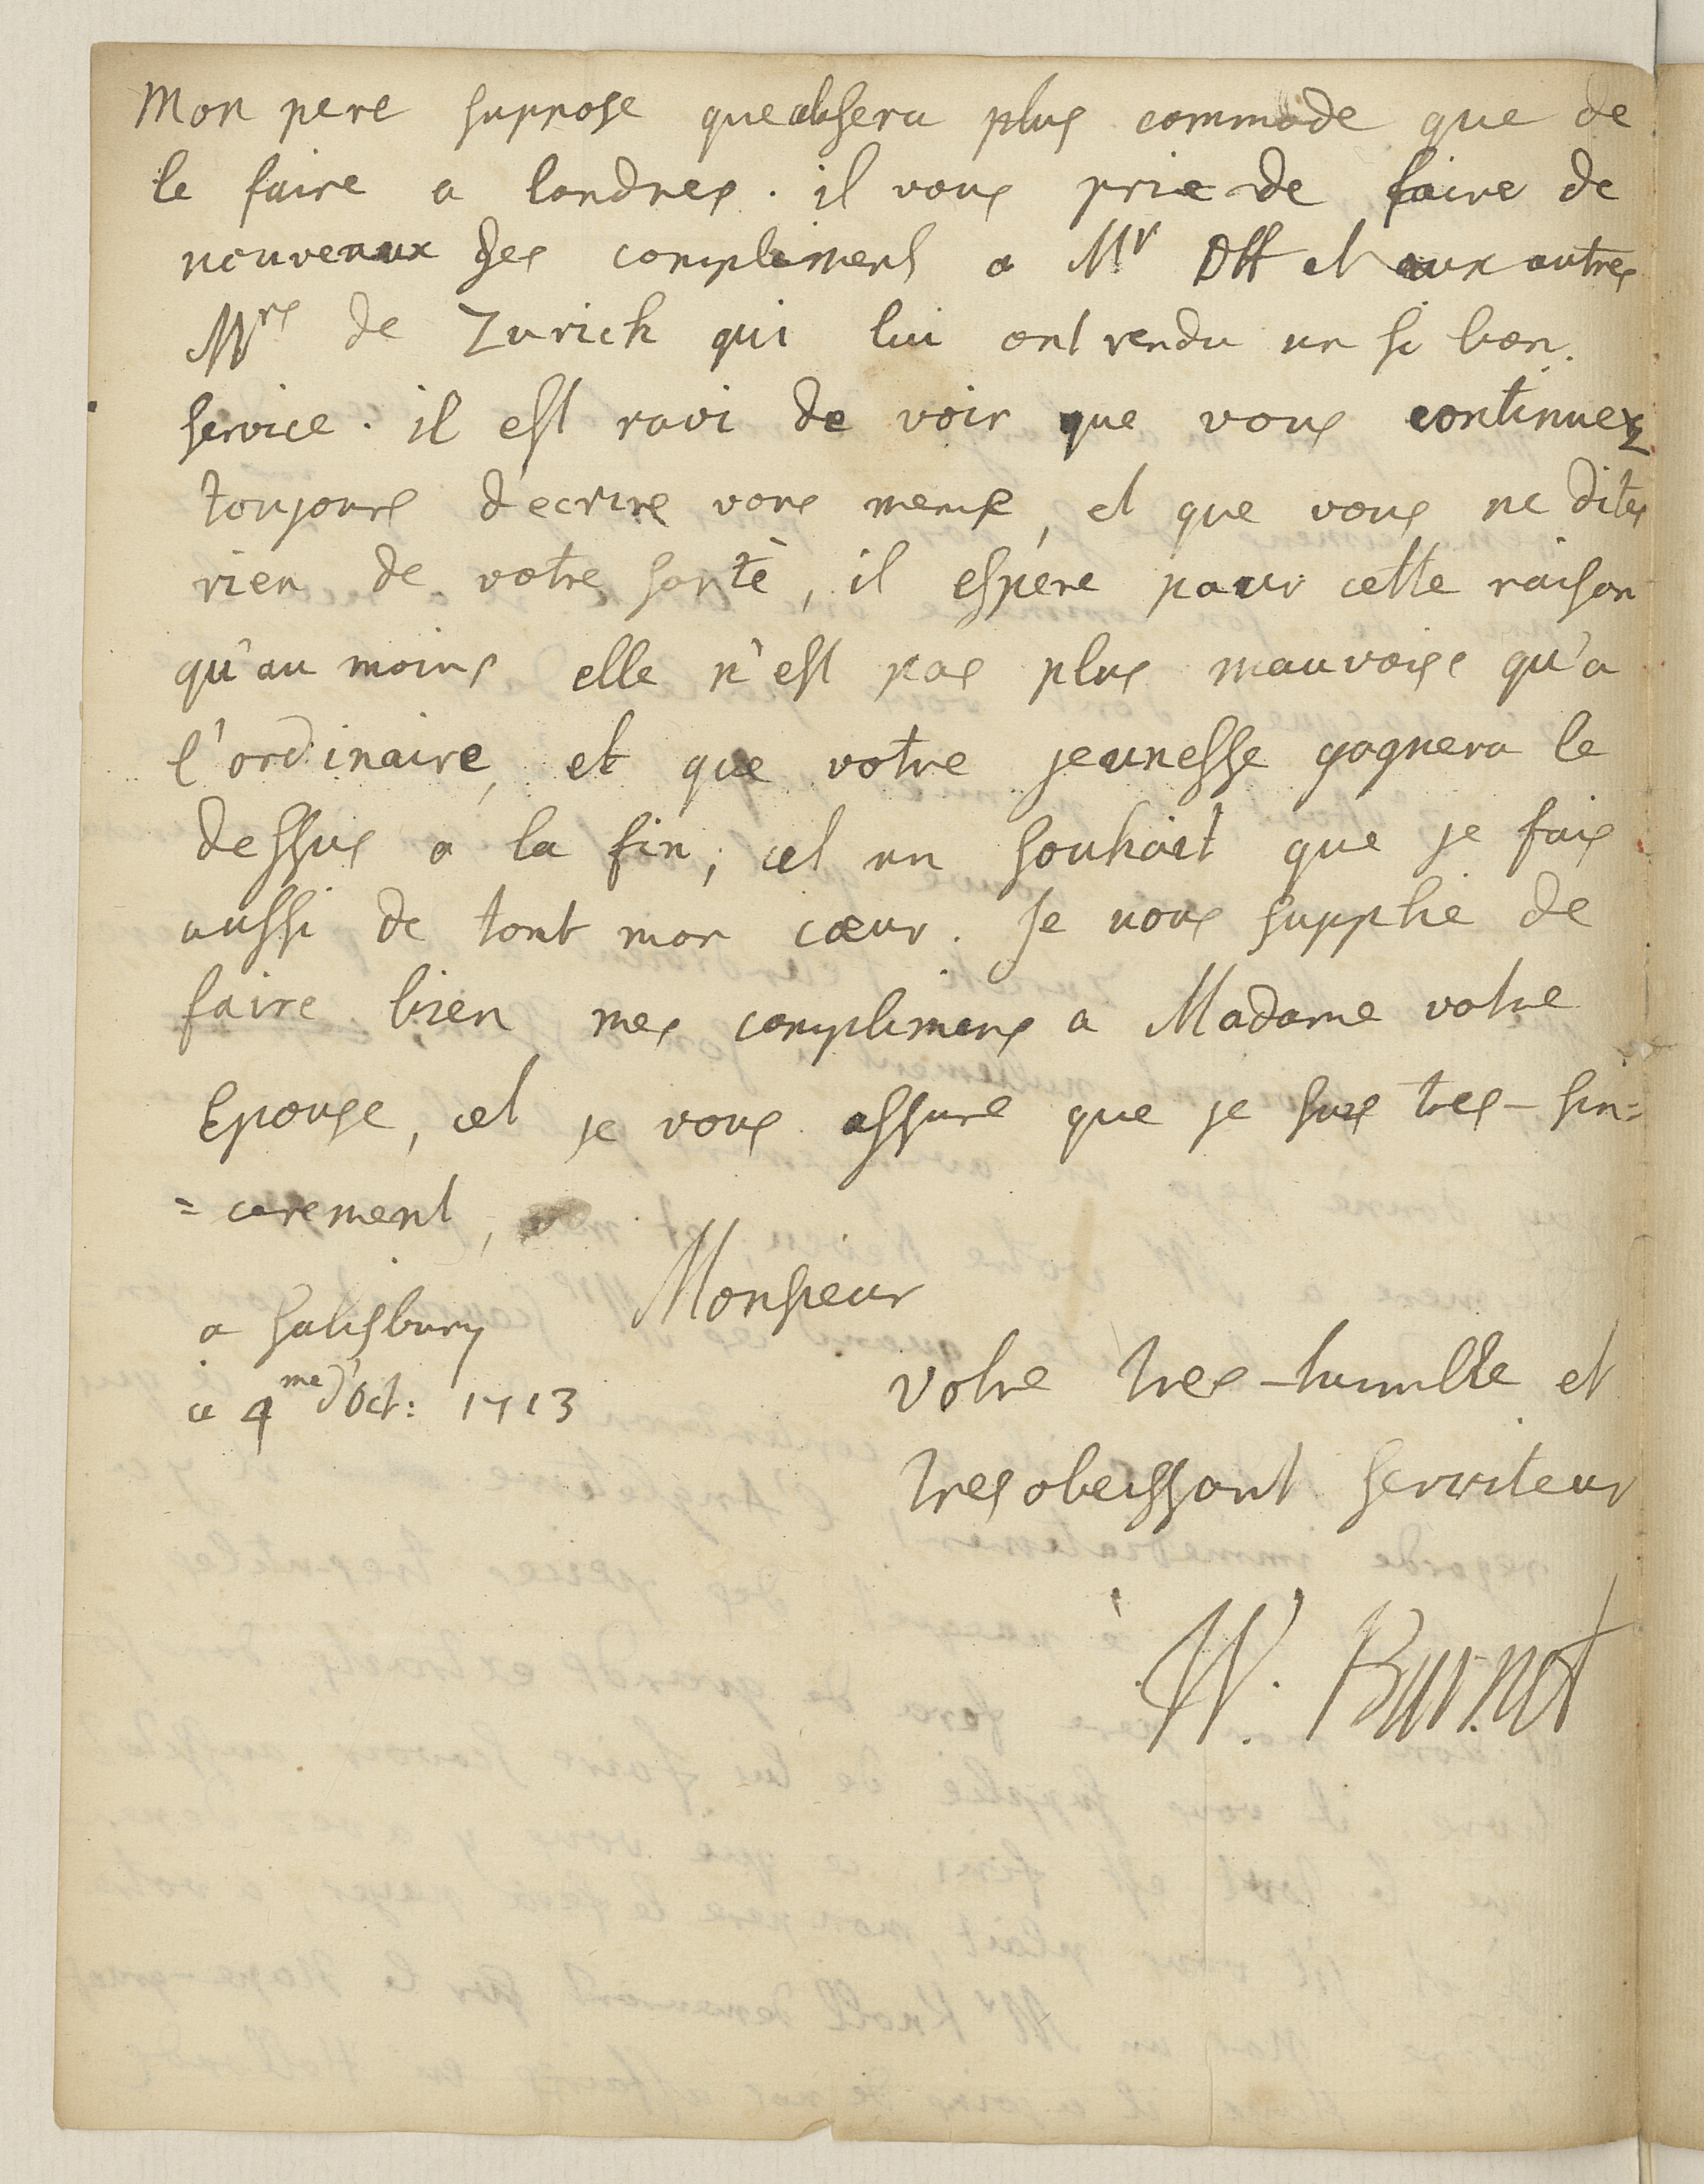 Mon pere suppose que cela sera plus commode que de
le faire a londres. il vous prie de faire de
nouveaux ses complimens a Mr Ott et aux autres
Mrs de Zurich qui lui ont rendu un si bon
service. il est ravi de voir que vous continuez
toujours d'ecrire vous meme, et que vous ne dites
rien de votre santè, il espere pour cette raison
qu'au moins elle n'est pas plus mauvaise qu'a
l'ordinaire, et que votre jeunesse gagnera le
dessus a la fin; cet un souhait que je fais
aussi de tout mon cœur. Je vous supplie de
faire bien mes complimens a Madame votre
Epouse, et je vous assure que je suis tres-sin=
=cerement,
Monsieur
a Salisbury
ce 4me d'Oct: 1713
Votre tres-humble et
tres obeissant serviteur
W. Burnet